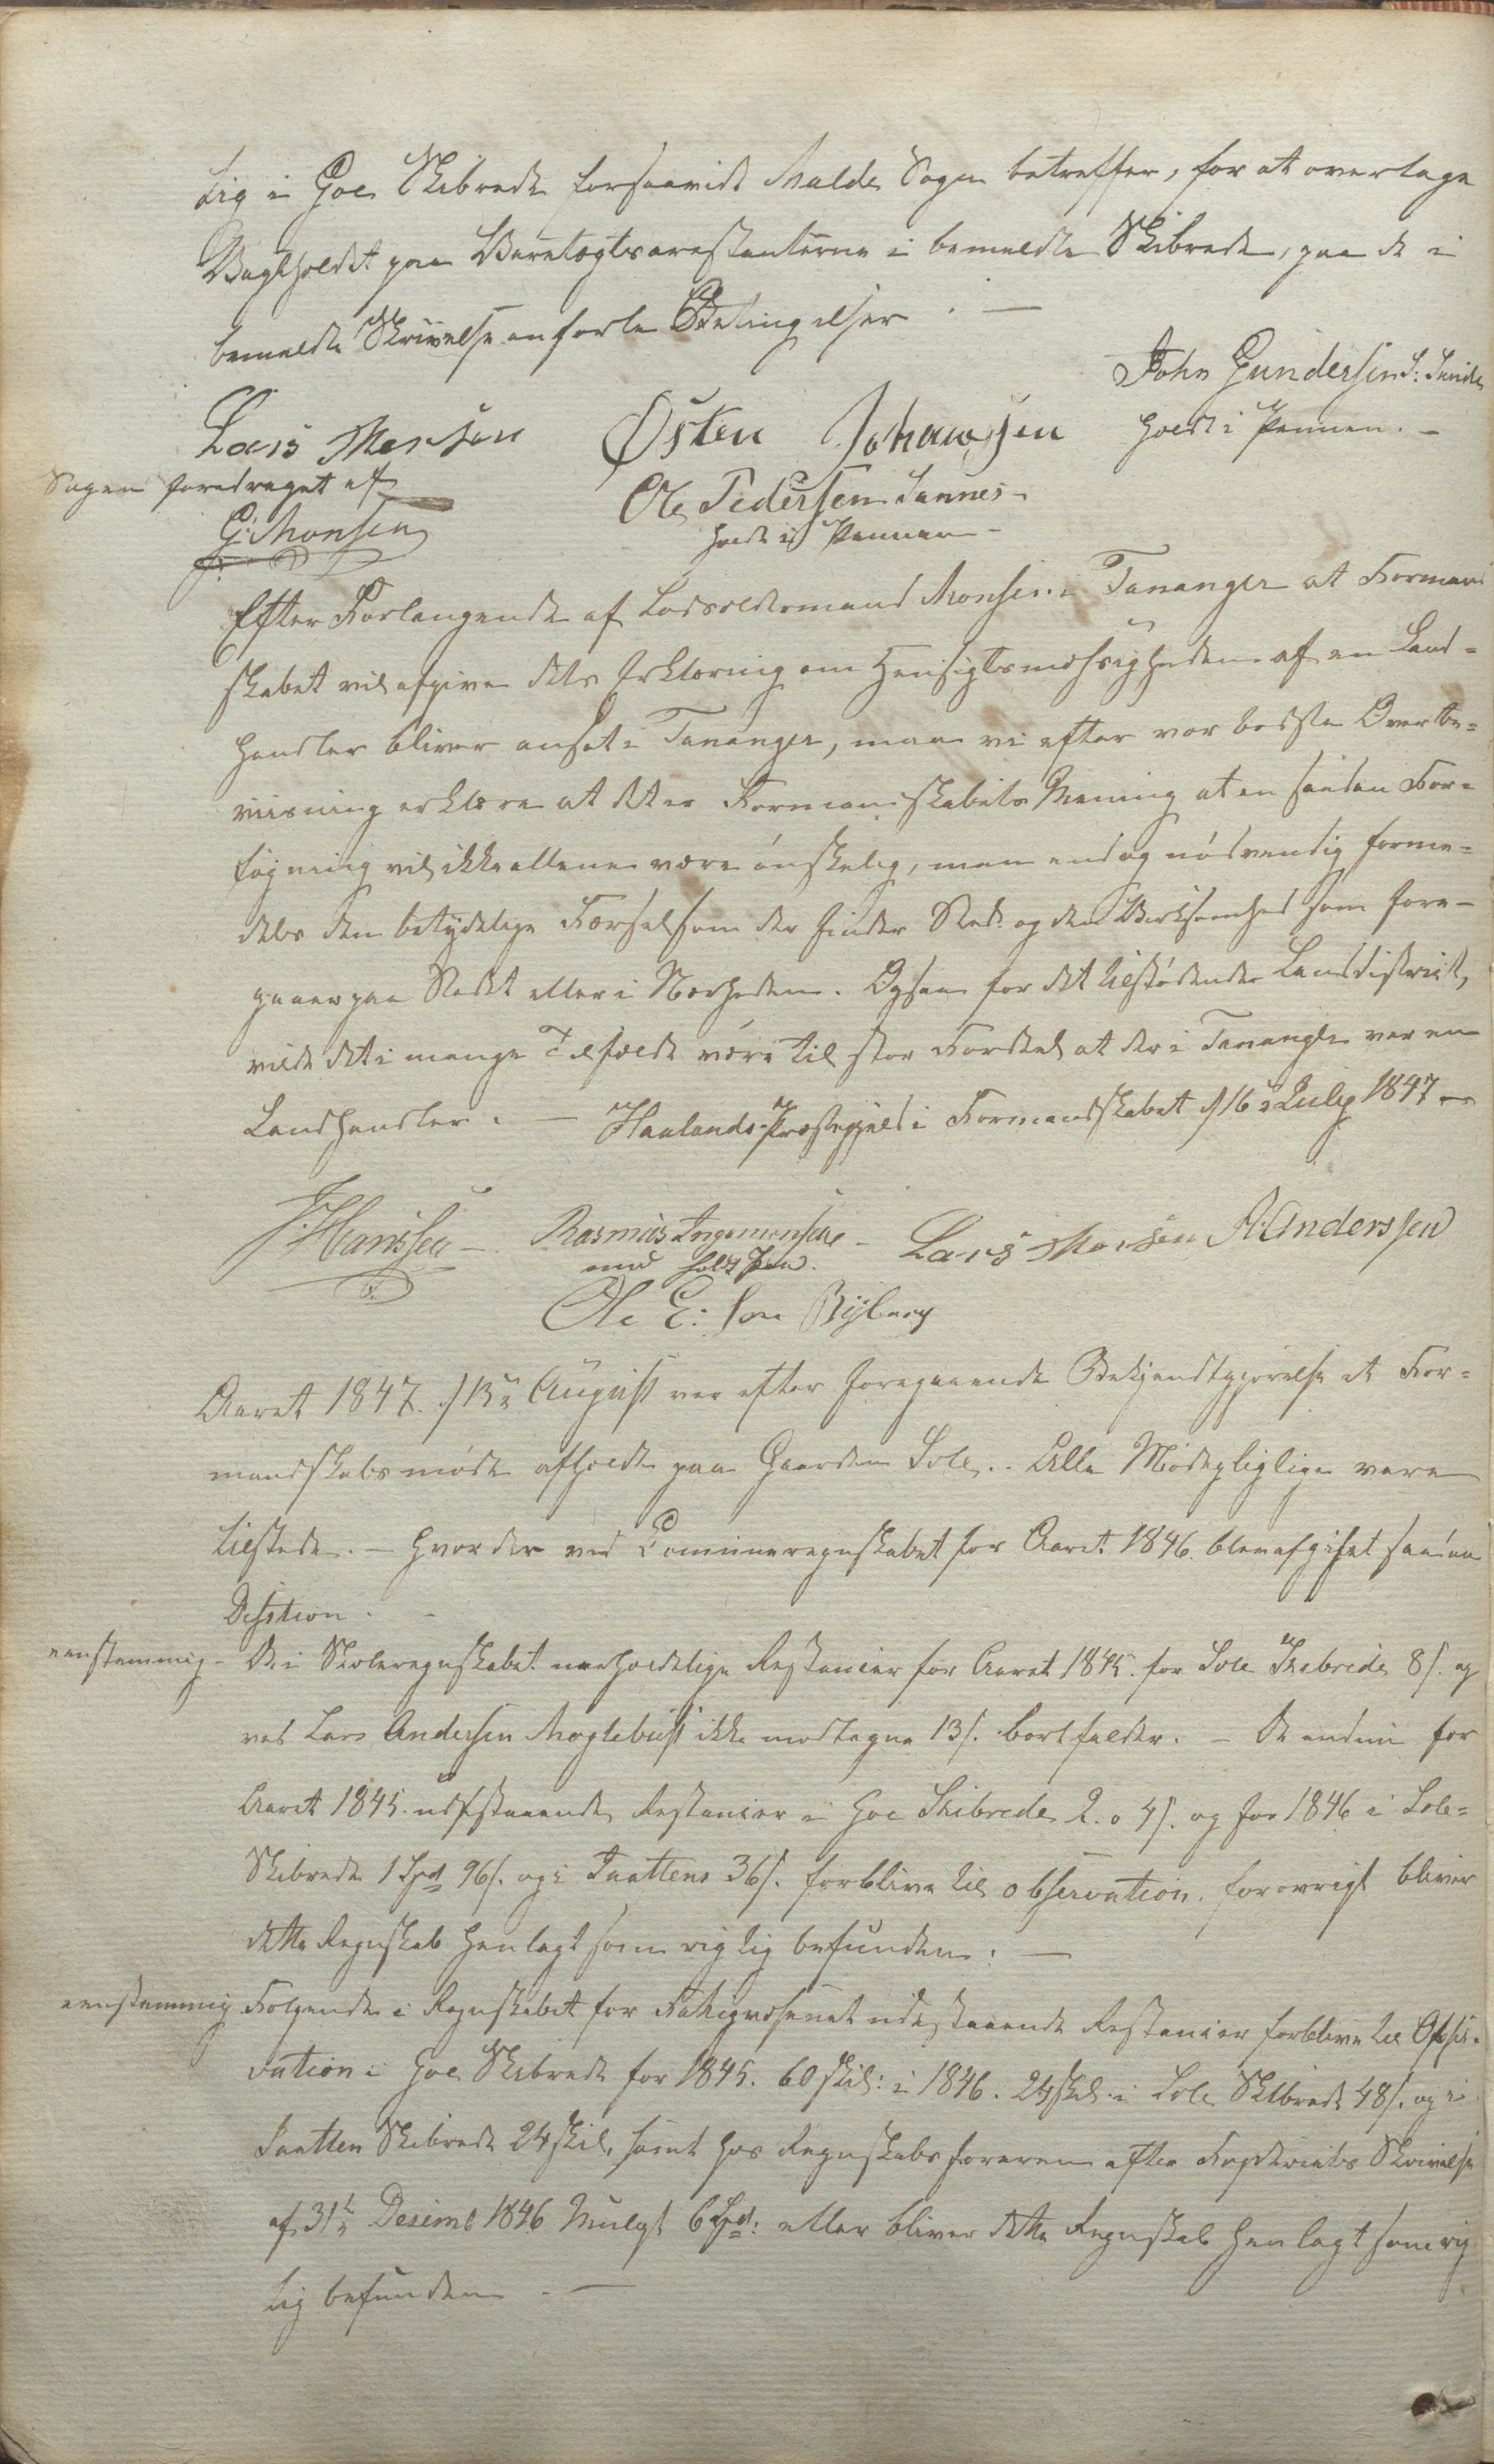 sig i Goe Skibrede forsaavidt Malde Sogn betreffer, for at overtage
Vagtholdet paa Varetægtsarestanterne i bemeldte Skibrede, paa de i
bemeldte Skrivelse anførte Betingelser. —
John Gundersen S: Sande
Lars Morsen Østen Johannsen holdt i Pennen. —
Sagen foredraget af Ole Pedersen Sannes
G. Monsen holdt i Pennen —
Efter Forlangende af Lodsoldermand Monsen i Tananger at Formand
skabet vil afgive dets Erklæring om Hensigtsmæssigheden af en Land-
handler bliver ansat i Tananger, maa vi efter vor bedste Overbe-
viisning erklære at det er Formandskabets Mening at en saadan For-
føyning vil ikke allene være ønskelig, men endog nødvendig forme-
delst den betydelige Færsel som der finder Sted og den Virksomhed som fore-
gaaer paa Stedet eller i Nærheden. Ogsaa for det tilstødende Landdistrict,
vilde det i mange Tilfælde være til stor Fordeel at der i Tananger var en
Landhandler. — Haalands Præstegjeld i Formandskabet d 16de Julij 1847 —
J. Hanssen — Rasmus Ingemonsen — Lars Morsen A. Anderssen
med holdt Pen.
Ole E: Søn Byberg
Aaret 1847. d 13de August var efter foregaaende Bekjendtgjørelse et For-
mandskabsmøde afholdt paa Gaarden Sole. Alle Mødepligtige vare
tilstede. — Hvor der ved Communeregnskabet for Aaret 1846. blev afgivet saadan
Desition. —
eenstemmig — De i Skoleregnskabet uerholdelige Restancer for Aaret 1845. for Sole Skibrede 8 s. og
ved Lars Andersen Moglebust ikke modtagne 13 s. bortfalder. — De endnu for
Aaret 1845. udestaaende Restancer i Goe Skibrede 2. o 4 s. og for 1846 i Sole-
Skibrede 1 Spd 96 s. og i Jaattens 36 s. forblive til observation. forøvrigt bliver
dette Regnskab henlagt som rigtig befunden. —
eenstemmig Følgende i Regnskabet for Fattigvæsenet udestaaende Restancer forblive til Obser-
vation i Goe Skibrede for 1845. 60 skil: i 1846. 24 skil. i Sole Skibrede 48 s. og i
Jaatten Skibrede 24 skil, samt hos Regnskabsføreren efter Skrivelse
af 31te Desembr 1846 Mulgt 6 Spd: eller bliver dette Regnskab henlagt som rig
tig befunden. —